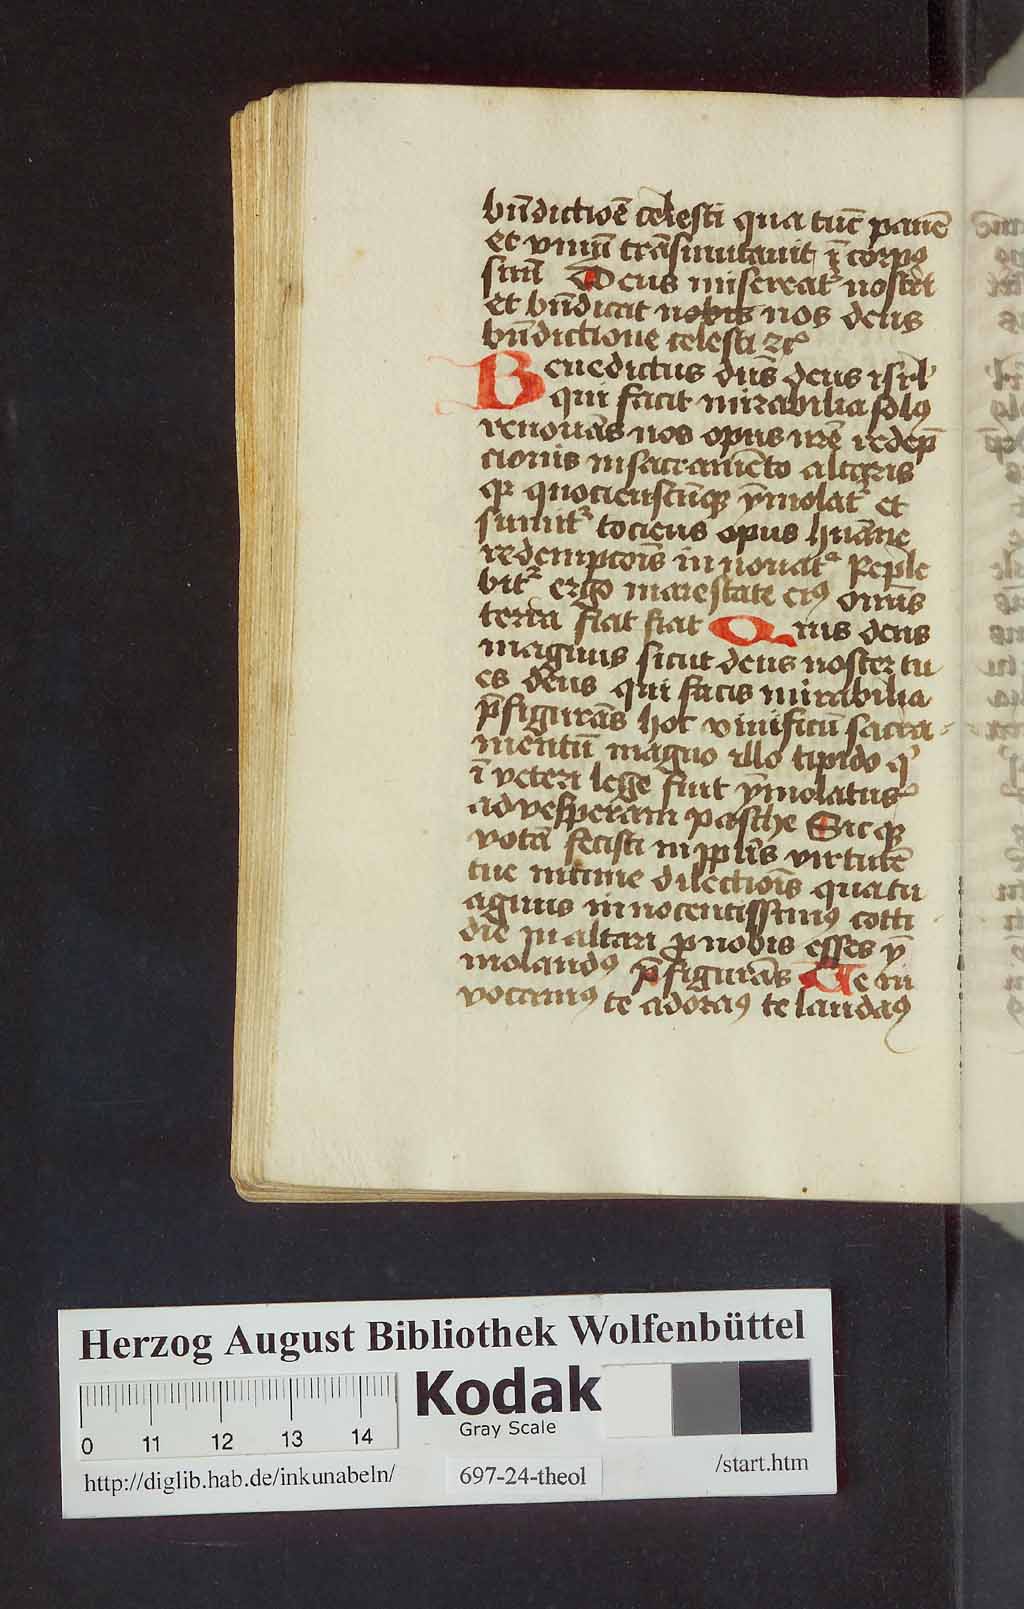 bn̄dictioē celesti qua tūc panē
et vinū trāsmutauit ī corpꝰ
suū Deus misereat᷑ nostri
et bn̄dicat nobis nos deus
bn̄dictione celesti ⁊cͦ
Benedictus dn̄s deus isrl᷑
qui facit mirabilia solꝰ
renouās nos opus nr̄e redēp
cionis in sacramēto altaris
qꝛ quocienscūqꝫ ym̄olat᷑ et
sumit᷑ tociens opus hūane
redempcoīs in nouat᷑ Reple
bit᷑ ergo maiestate eiꝰ om̄is
terra fiat fiat Quis deus
magnus sicut deus noster tu
es deus qui facis mirabilia
p̄figurās hoc viuificū sacra-
mentū magno illo tipido qͥ
ī veteri lege fuit ym̄olatus
ad vesperam pasche Sicqꝫ
notā fecisti in ppl̄is virtutē
tue intime dilectiōis qua tu
agnus innocentissimꝰ cotti
die in altari ꝓ nobis esses ym̄
molandꝰ p̄figurās Te in
vocamꝰ te adoramꝰ te laudamꝰ
Herzog August Bibliothek Wolfenbüttel
Kodak
Gray Scale
0 11 12 13 14
http://diglib.hab.de/inkunabeln/
697-24-theol
/start.htm